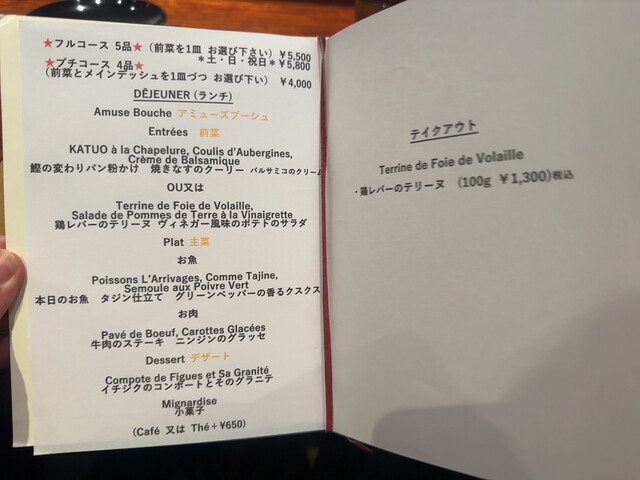 ★フルコース 5品★（前菜を1皿 お選び下さい）￥5,500
＊土・日・祝日＊￥5,800
★プチコース 4品★
（前菜とメインデッシュを1皿づつ お選び下い） ￥4,000
DÉJEUNER (ランチ)
Amuse Bouche アミューズブーシュ
Entrées 前菜
KATUO à la Chapelure, Coulis d'Aubergines,
Crème de Balsamique
鰹の変わりパン粉かけ 焼きなすのクーリー バルサミコのクリーム
OU又は
Terrine de Foie de Volaille,
Salade de Pommes de Terre à la Vinaigrette
鶏レバーのテリーヌ ヴィネガー風味のポテトのサラダ
Plat 主菜
お魚
Poissons L'Arrivages, Comme Tajine,
Semoule aux Poivre Vert
本日のお魚 タジン仕立て グリーンペッパーの香るクスクス
お肉
Pavé de Boeuf, Carottes Glacées
牛肉のステーキ ニンジンのグラッセ
Dessert デザート
Compote de Figues et Sa Granité
イチジクのコンポートとそのグラニテ
Mignardise
小菓子
(Café 又は Thé＋¥650)
テイクアウト
Terrine de Foie de Volaille
・鶏レバーのテリーヌ (100g ￥1,300)税込